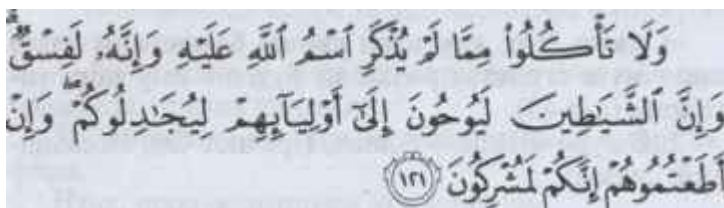 وَلَا تَأْكُلُوا۟ مِمَّا لَمْ يُذْكَرِ ٱسْمُ ٱللَّهِ عَلَيْهِ وَإِنَّهُۥ لَفِسْقٌۭ ۗ
وَإِنَّ ٱلشَّيَٰطِينَ لَيُوحُونَ إِلَىٰٓ أَوْلِيَآئِهِمْ لِيُجَٰدِلُوكُمْ ۖ وَإِنْ
أَطَعْتُمُوهُمْ إِنَّكُمْ لَمُشْرِكُونَ ١٢١